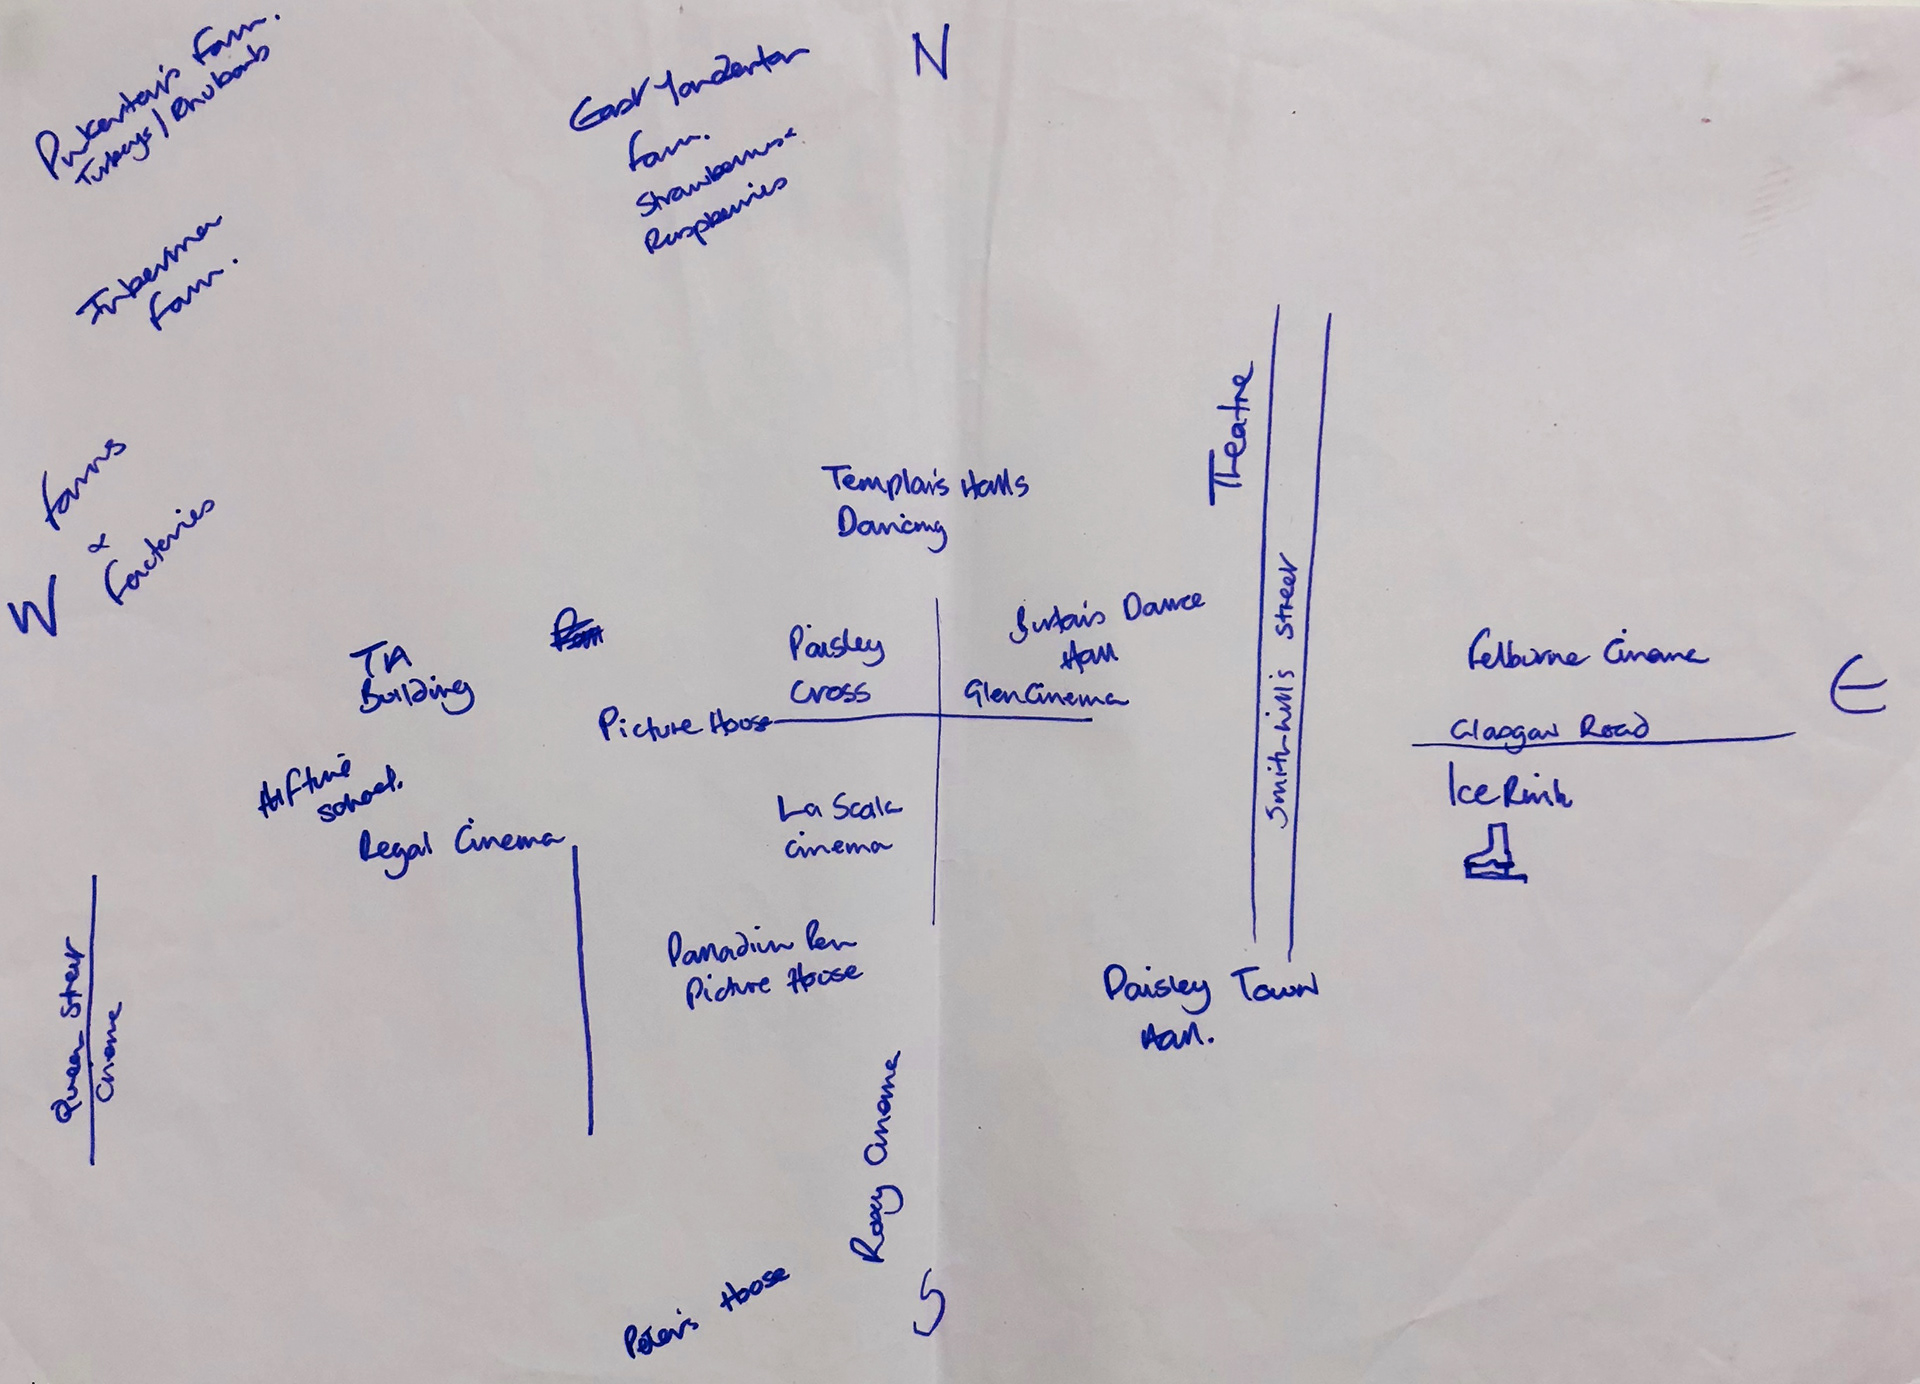 N
Pinkerton's Farm.
Turkeys / Rhubarb
East Yonderton
Farm.
Strawberries &
Raspberries
Inkerman
Farm.
Farms
&
Factories
W
Theatre
Templar's Halls
Dancing
TA
Building
Paisley
Cross
Dance
Hall
Glen Cinema
Picture House
Smithhills Street
Kelburne Cinema
E
Glasgow Road
Ice Rink
School.
Regal Cinema
La Scala
Cinema
Queen Street
Cinema
Picture House
Paisley Town
Hall.
Roxy Cinema
Peter's House
S